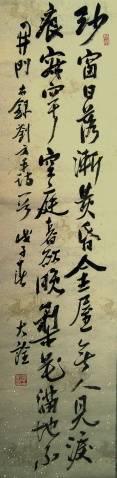 紗窗日落漸黃昏金屋無人見淚
痕寂寞空庭春欲晚梨花滿地不
開門 錄劉方平詩 戊子